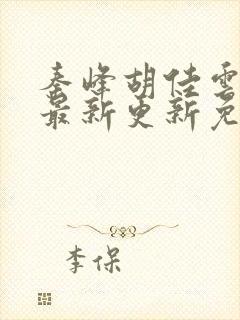 秦峰胡佳云
最新更新免
李保